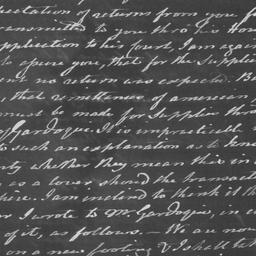 pectation of returns from you f
ransmitted to you thro his Hon
pplication to his forest, I am again
to assure you, that for the Supplie
ent no return was expected. B
, that remittances of american
must be made for Supplies thro
of Gardoqui. It is impracticable
to such an explanation as to
nty whether they mean this in
as a cover should the transact
here. I am inclined to think it th
or I wrote to Mr Gardoqui, in
of it, as follows. — We are now
on a new footing & I shall tak